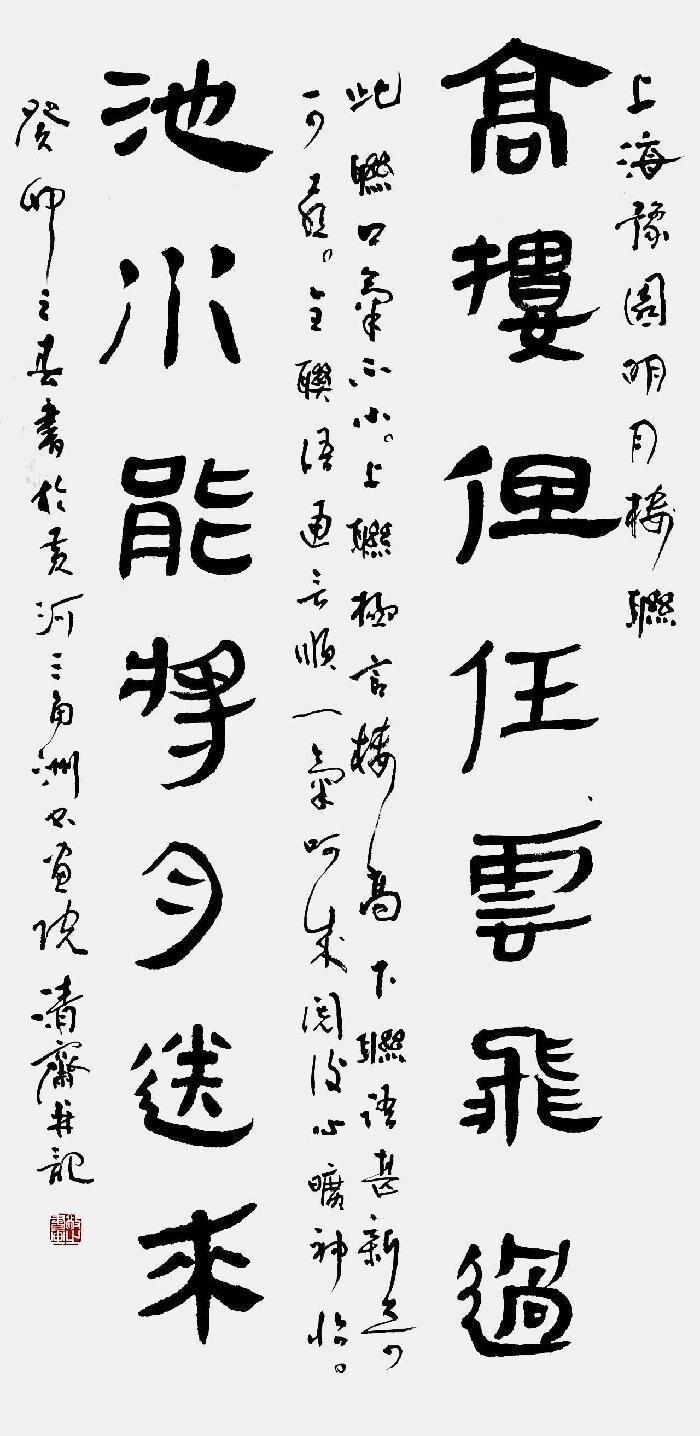 上海豫園明月樓聯
高樓但任雲飛過
此聯口氣不小。上聯極言樓之高下聯語甚新
全聯語通言順一氣呵成閱後心曠神怡。
池水能將月送來
癸卯之春書於黃河三角洲書畫院清齋并記